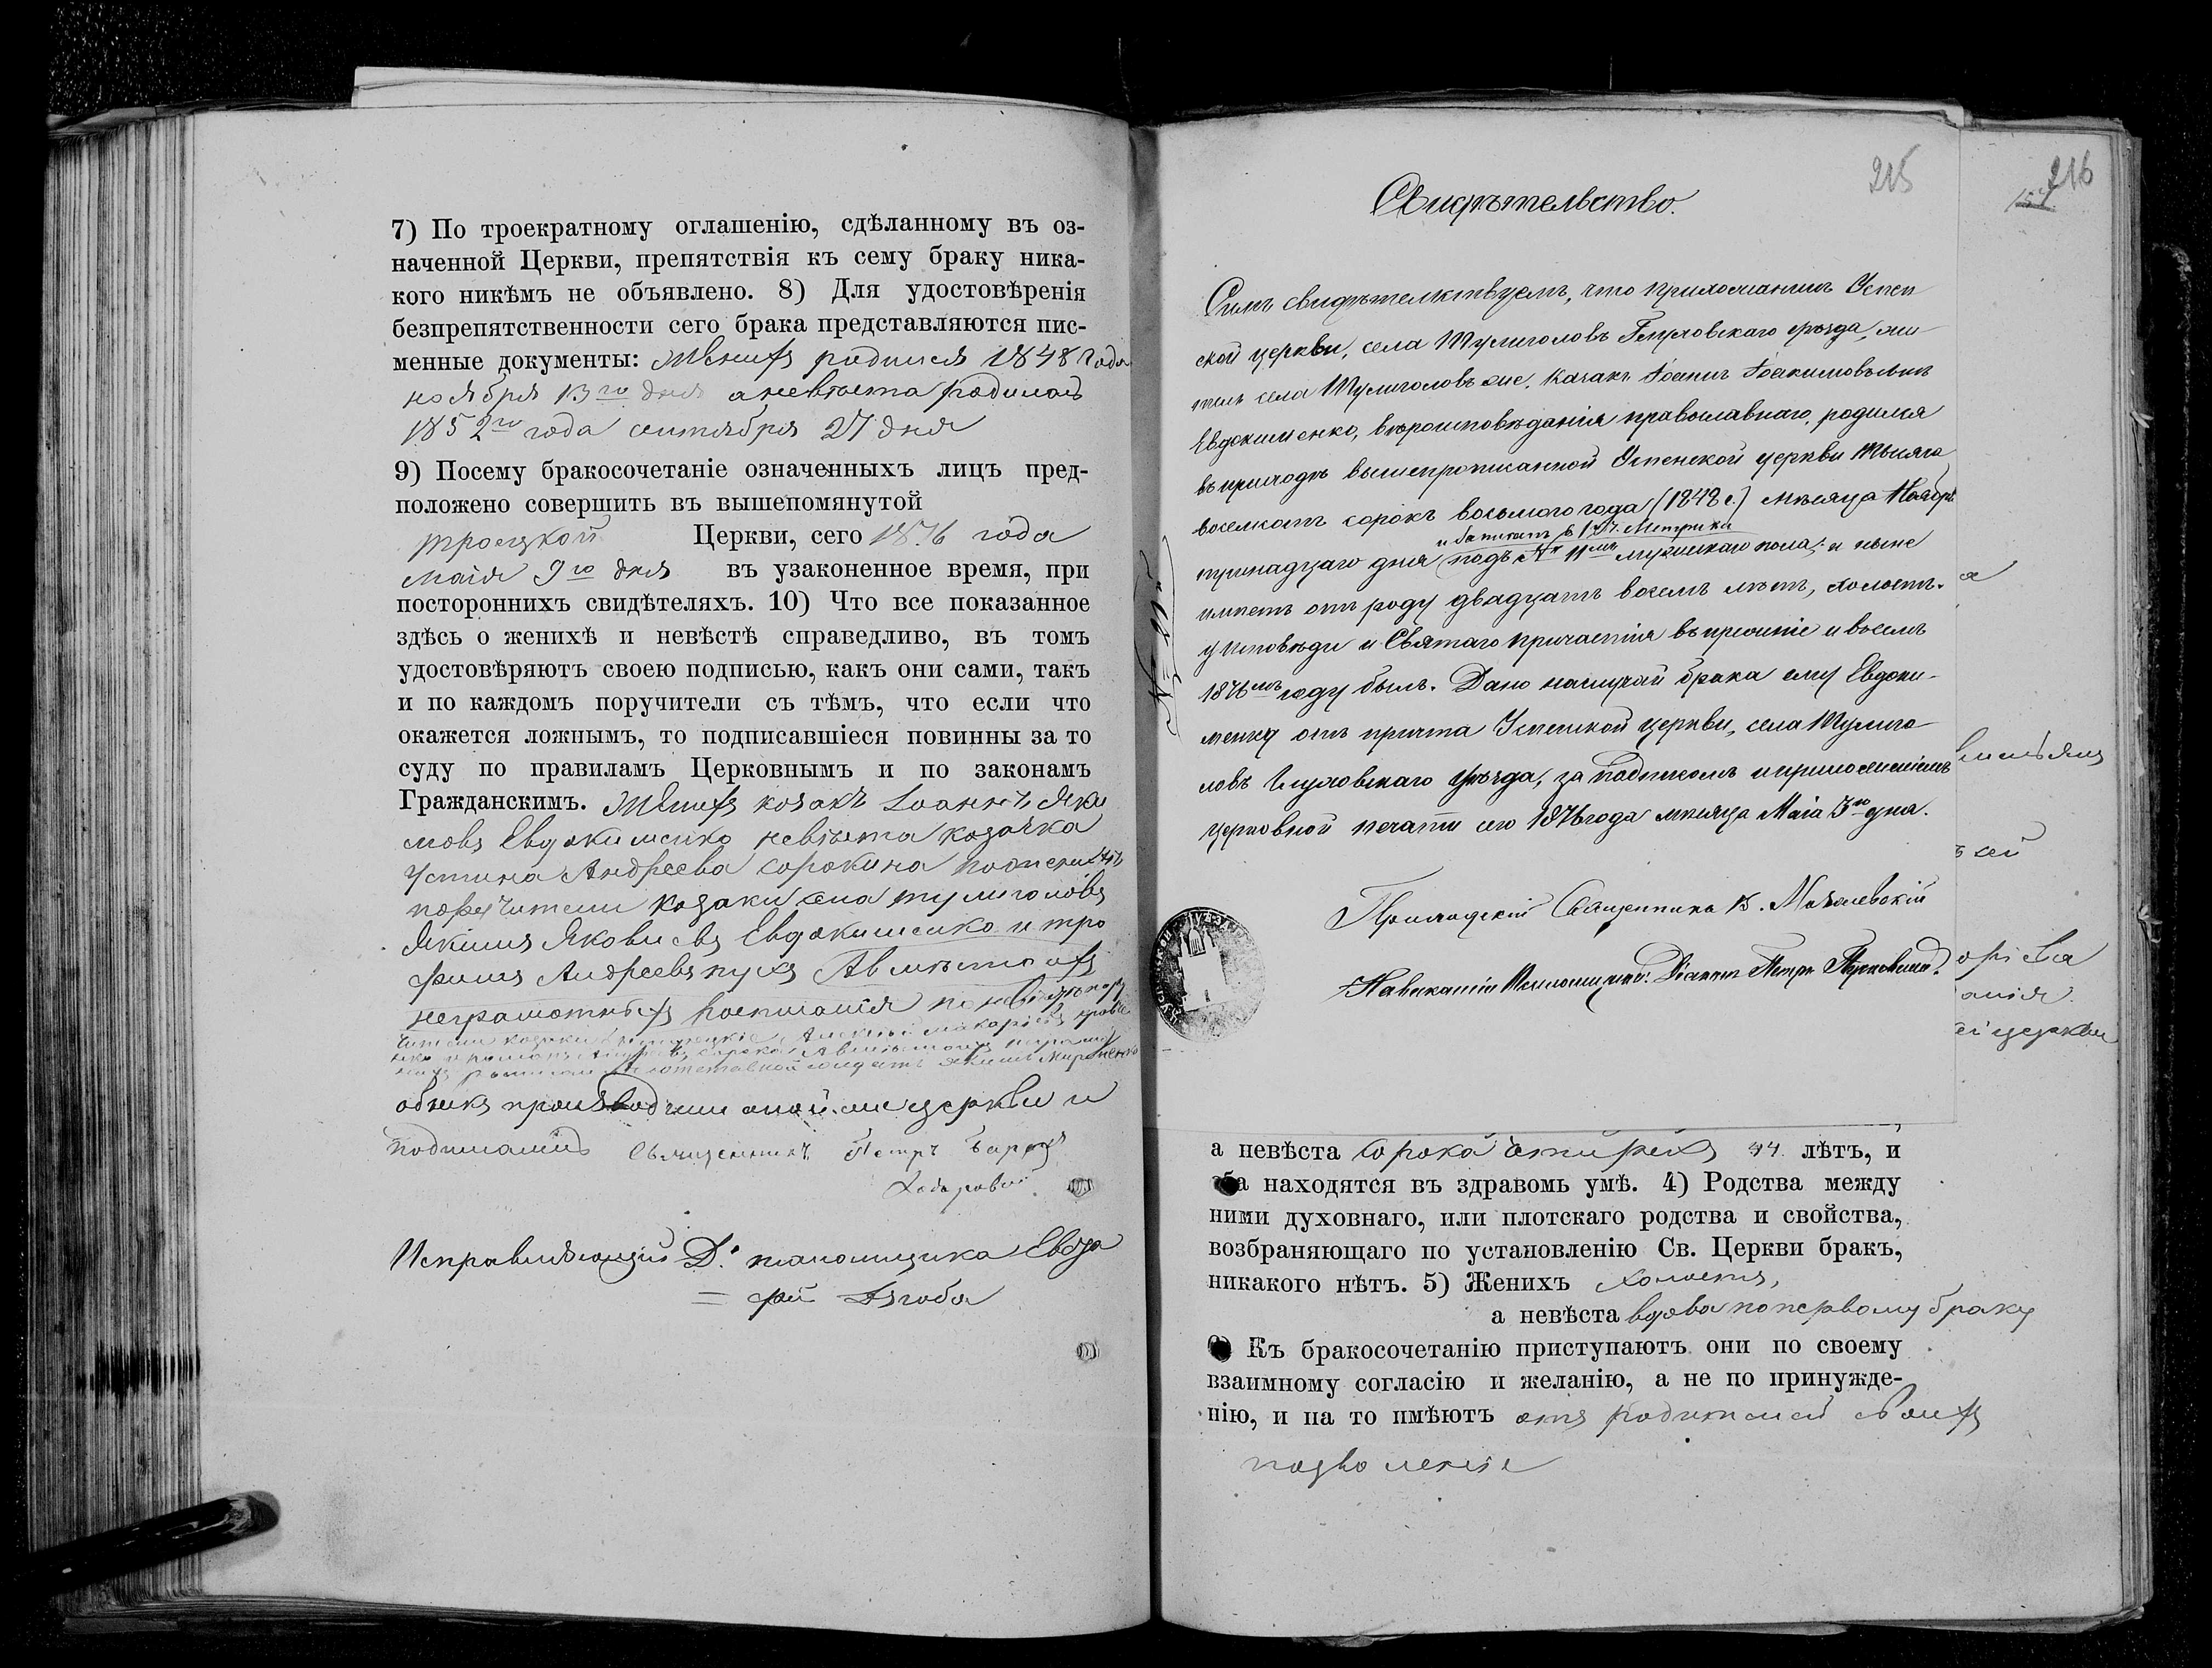 7) По троекратному оглашенію, сдѣланному въ оз-
наченной Церкви, препятствія къ сему браку ника-
кого никѣмъ не объявлено. 8) Для удостовѣренія
безпрепятственности сего брака представляются пис-
менные документы: Женихъ родился 1848 года
ноября 13го дня а невѣста родилась
1852го года сентября 27 дня
9) Посему бракосочетаніе означенныхъ лицъ пред-
положено совершить въ вышепомянутой
троецкой Церкви, сего 1876 года
маія 9го дня въ узаконенное время, при
постороннихъ свидѣтеляхъ. 10) Что все показанное
здѣсь о женихѣ и невѣстѣ справедливо, въ томъ
удостовѣряютъ своею подписью, какъ они сами, такъ
и по каждомъ поручители съ тѣмъ, что если что
окажется ложнымъ, то подписавшіеся повинны за то
суду по правиламъ Церковнымъ и по законамъ
Гражданскимъ. Женихъ козакъ Іоаннъ Яки
мовъ Евдокименко невѣста козачка
Устина Андреева сорокина по женихѣ
поручители козаки села тулиголовъ
Якимъ Яковлевъ Евдокименко и тро
фимъ Андреевъ пухъ А вместо ихъ
неграмотныхъ росписался по невѣстѣ пору
чители козаки
обыскъ производили оной же церкви и
подписались Священникъ Петръ
Исправляющій Д. псаломщика Евдо
= фій Дзюба
215
216
Свидѣтельство.
Симъ свидѣтельствуемъ, что прихожанинъ Успен
ской церкви, села Тулиголовъ Глуховскаго уѣзда, жи
тель села Тулиголовъ же, казакъ Іоаннъ Іоакимовъ сынъ
Евдокименко, вѣроисповѣданія православнаго, родился
въ приходѣ вышепрописанной Успенской церкви тысяча
восемсотъ сорокъ восьмого года (1848 г.) мѣсяца Ноября
тринадцаго дня подъ № 11мъ мужескаго пола; и ныне
имѣетъ отъ роду двадцать восемъ лѣтъ, холостъ.
у исповѣди и Святаго причастія въ прошліе и восемъ
1876мъ году былъ. Дано на случай брака ему Евдоки-
менку отъ причта Успенской церкви, села Тулиго
ловъ Глуховскаго уѣзда, за подписомъ и приложеніемъ
церковной печати сего 1876 года мѣсяца Маія 3го дня.
Приходскій Священникъ
а невѣста сорока четырехъ 44 лѣтъ, и
оба находятся въ здравомъ умѣ. 4) Родства между
ними духовнаго, или плотскаго родства и свойства,
возбраняющаго по установленію Св. Церкви бракъ,
никакого нѣтъ. 5) Женихъ холостъ,
а невѣста вдова по первому браку
6) Къ бракосочетанію приступаютъ они по своему
взаимному согласію и желанію, а не по принужде-
нію, и на то имѣютъ отъ родителей своихъ
позволеніе